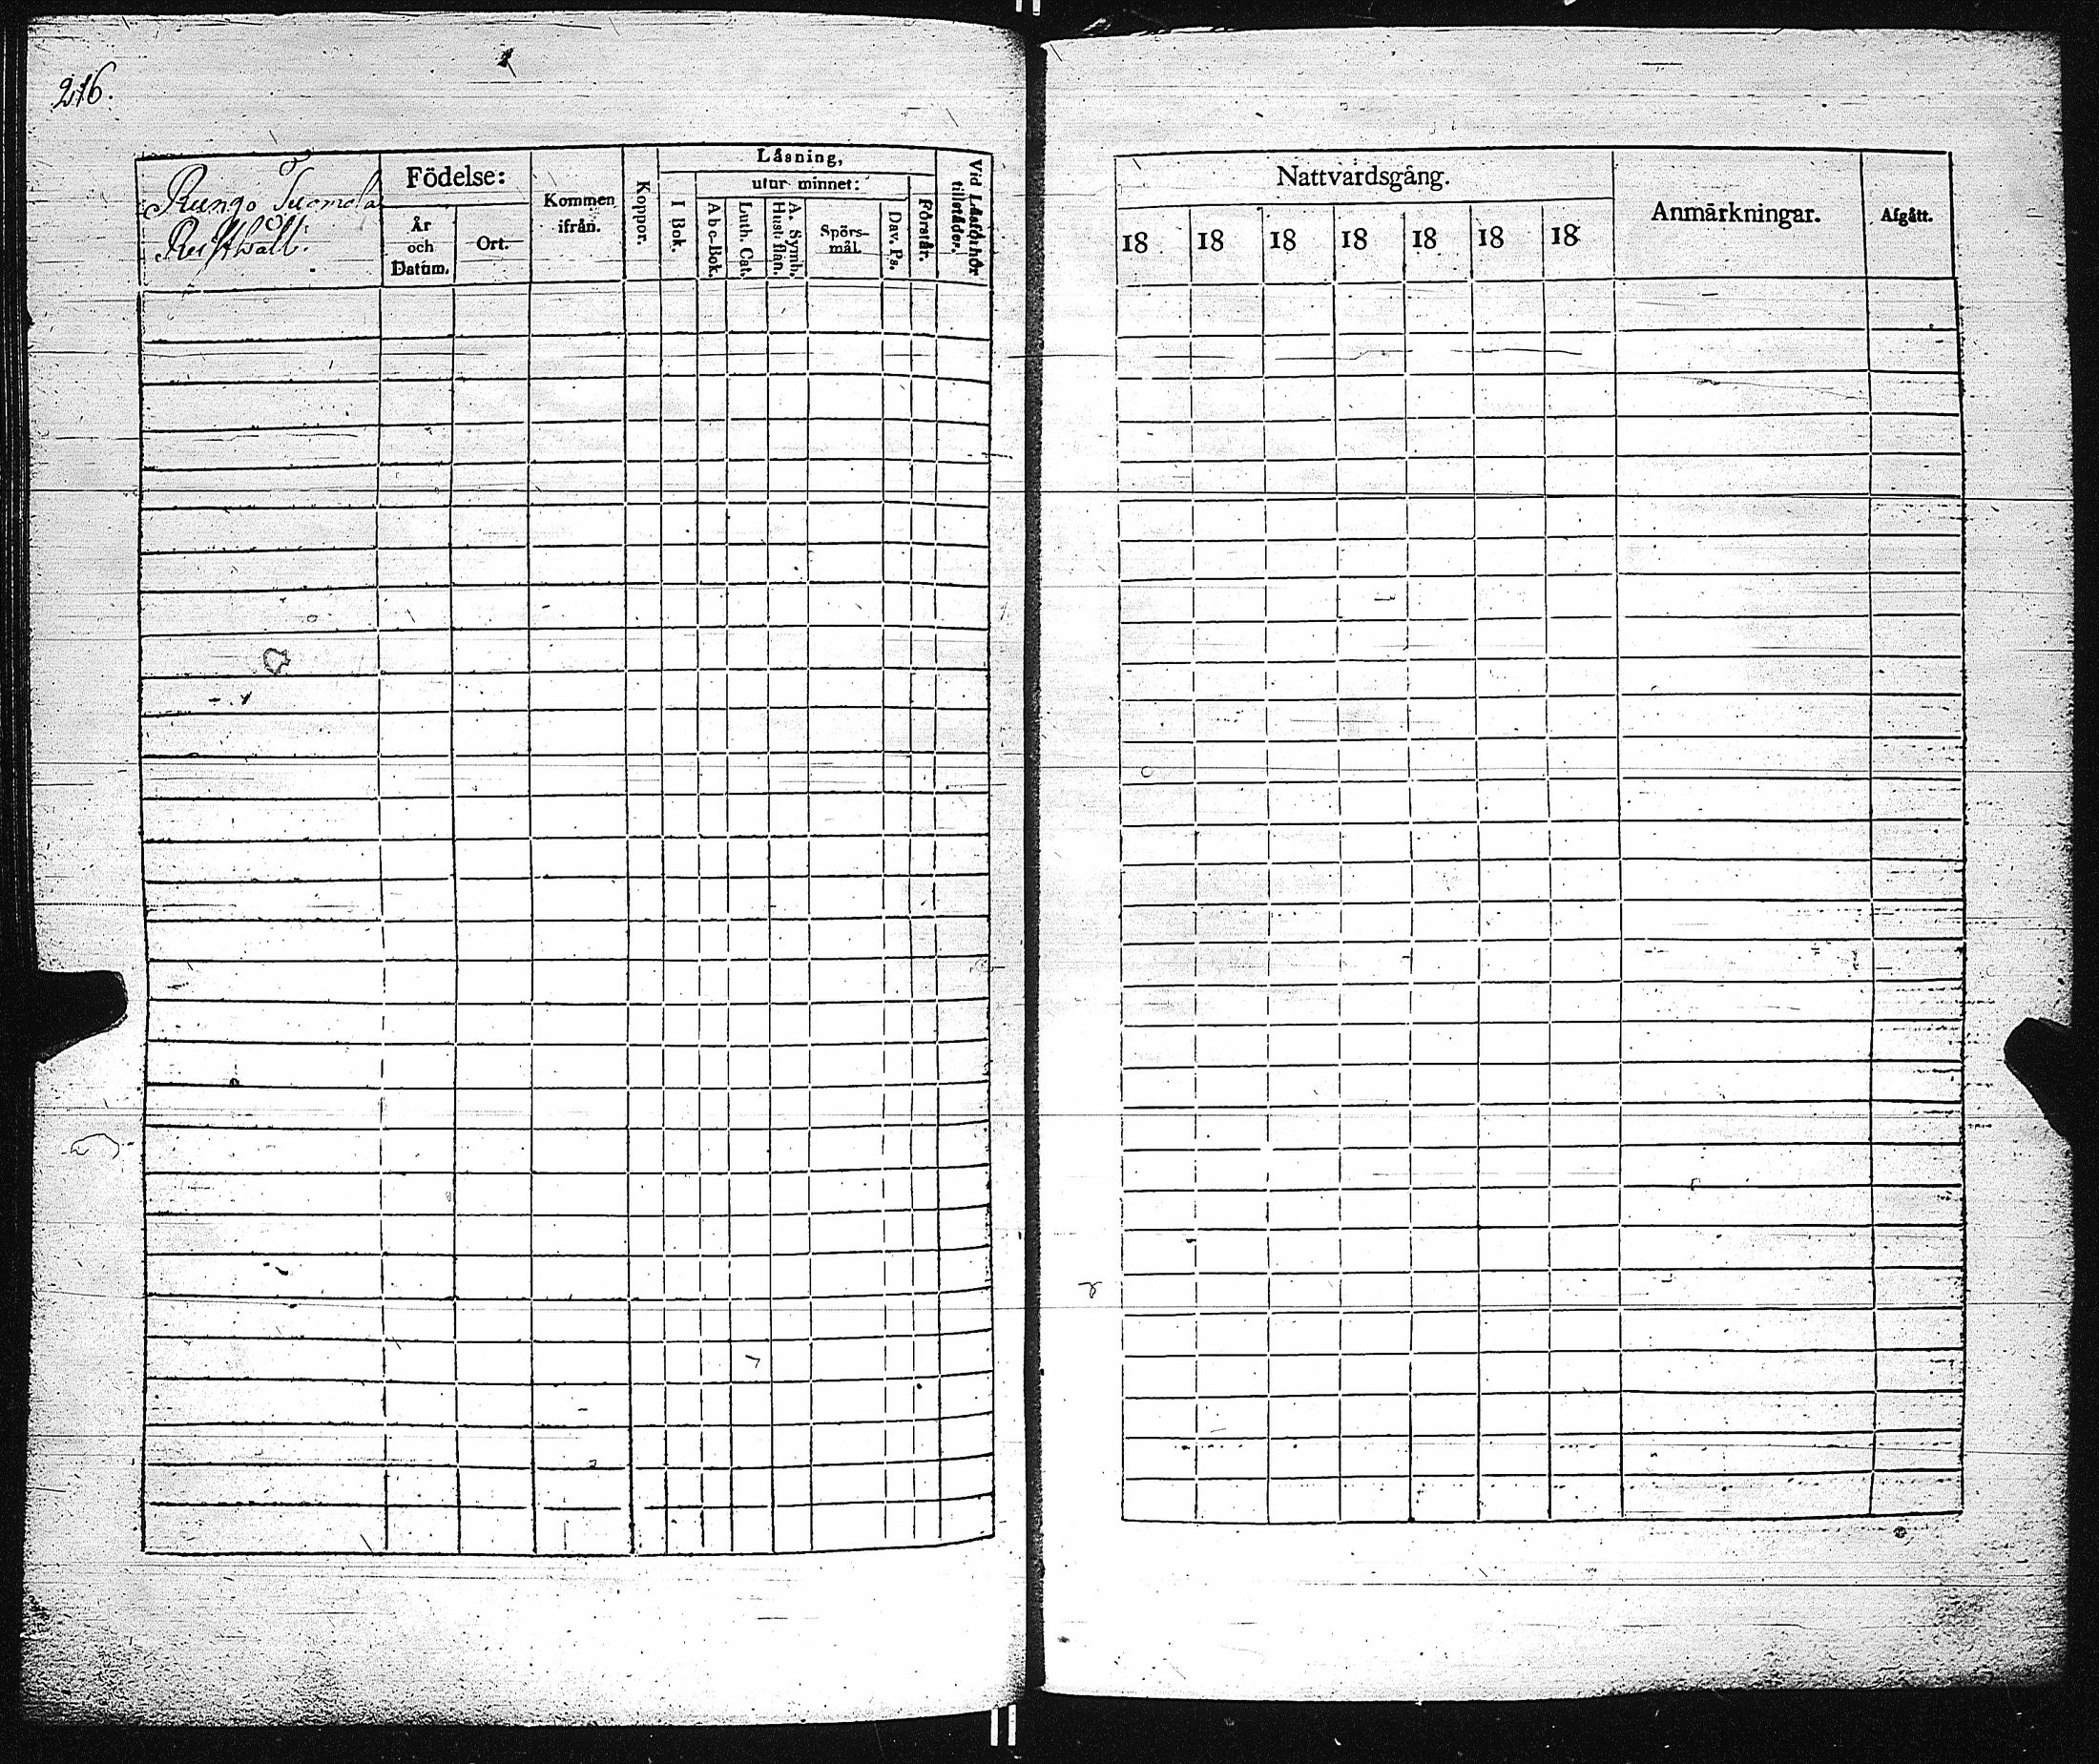 216.
Rungo Tuomola
Rusthåll.
Födelse:
År
och
Datum.
Ort.
Kommen
ifrån.
Koppor.
Läsning,
I Bok.
utur minnet:
Abc-Bok.
Luth. Cat.
A. Symb.
Hust. flan.
Spörs-
mål.
Dav. Ps.
Förstår.
Vid Låsförhör
tillståder.
Nattvardsgång.
18 18 18 18 18 18 18
Anmärkningar.
Afgått.